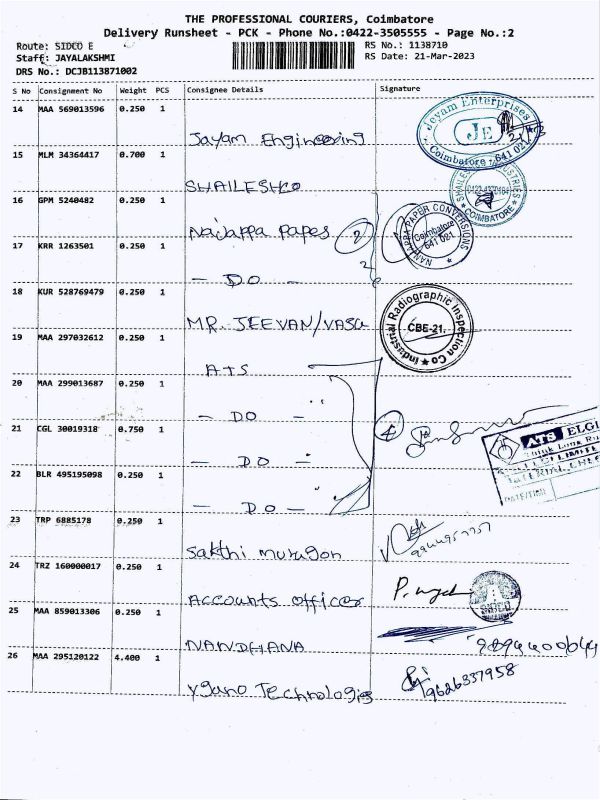 THE PROFESSIONAL COURIERS, Coimbatore
Delivery Runsheet - PCK - Phone No.:0422-3505555 - Page No.:2
Route: SIDCO E
RS No.: 1138710
Staff: JAYALAKSHMI
RS Date: 21-Mar-2023
DRS No.: DCJB113871002
S No Consignment No Weight PCS Consignee Details Signature
14 MAA 569013596 0.250 1
Jayam Engineering
Jeyam Enterprises
JE
Coimbatore - 641 021
15 MLM 34364417 0.700 1
SHAILESHCO
COIMBATORE
16 GPM 5240482 0.250 1
Papes 2
PAPER CONVERSIONS
Coimbatore
641 021
17 KRR 1263501 0.250 1
- DO -
18 KUR 528769479 0.250 1
MR. JEEVAN/VASU
Industrial Radiographic Inspection Co
CBE-21.
19 MAA 297032612 0.250 1
ATS
20 MAA 299013687 0.250 1
- DO - "
21 CGL 30019318 0.750 1
- DO - "
4
ATS ELGI
22 BLR 495195098 0.250 1
- DO - "
DATE/TIME
23 TRP 6885178 0.250 1
Sakthi murugan
24 TRZ 160000017 0.250 1
Accounts officer
SIDCO
25 MAA 859013306 0.250 1
NANDHANA
26 MAA 295120122 4.400 1
Technologies
9626337958